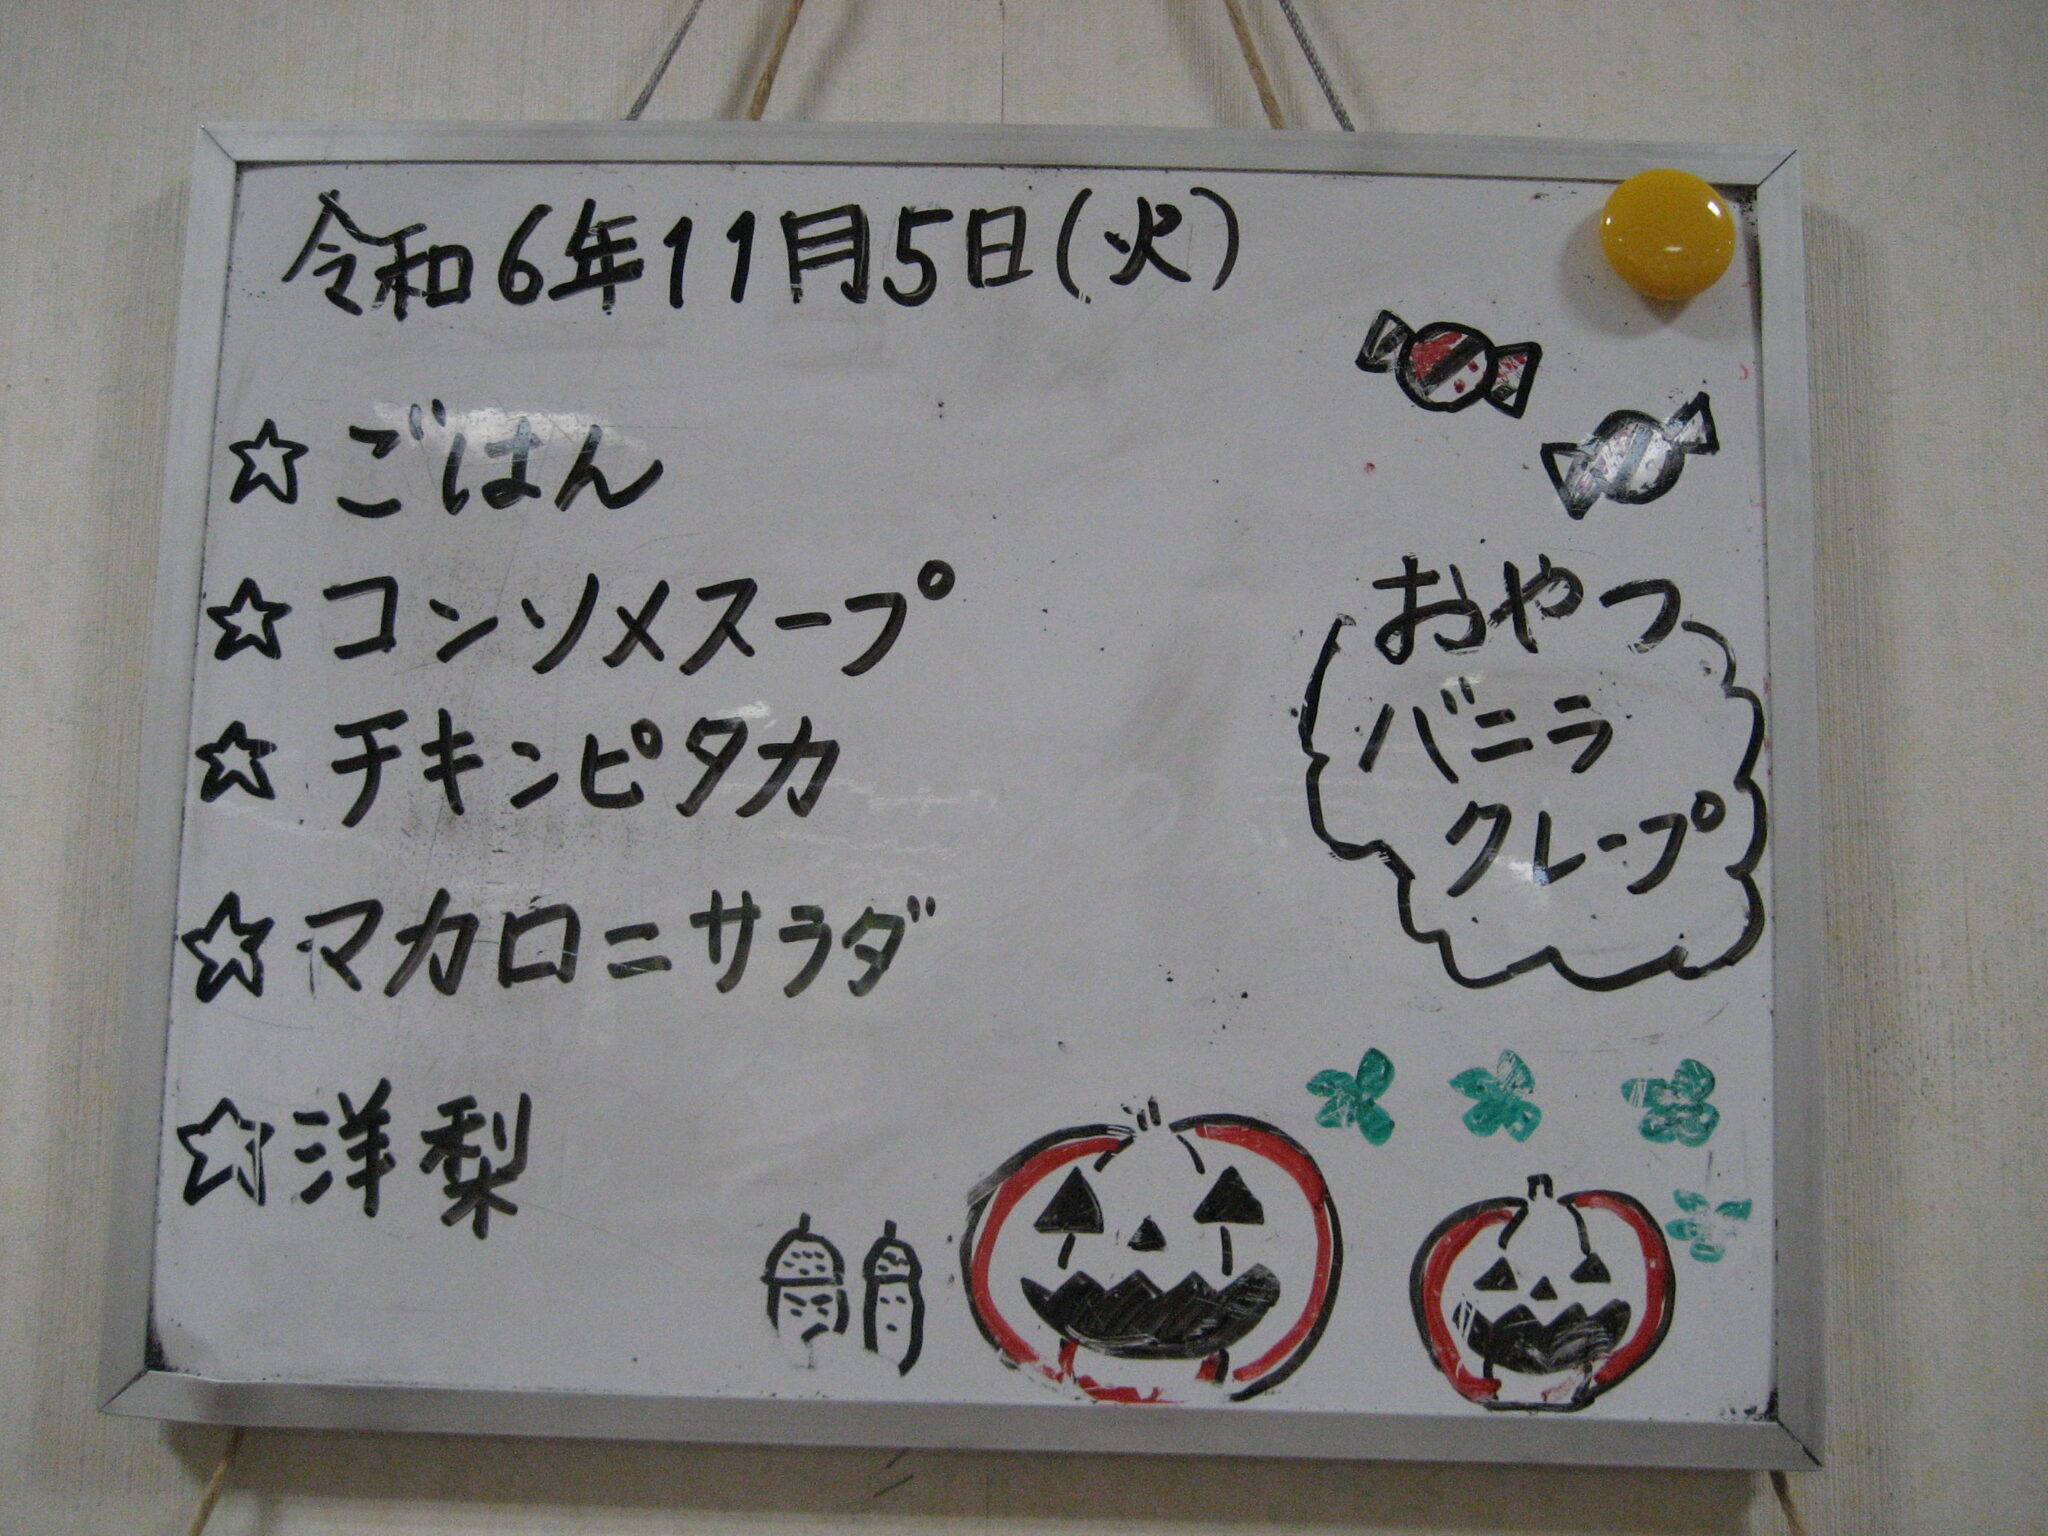 令和6年11月5日(火)
☆ごはん
☆コンソメスープ
☆チキンピタカ
☆マカロニサラダ
☆洋梨
おやつ
バニラ
クレープ